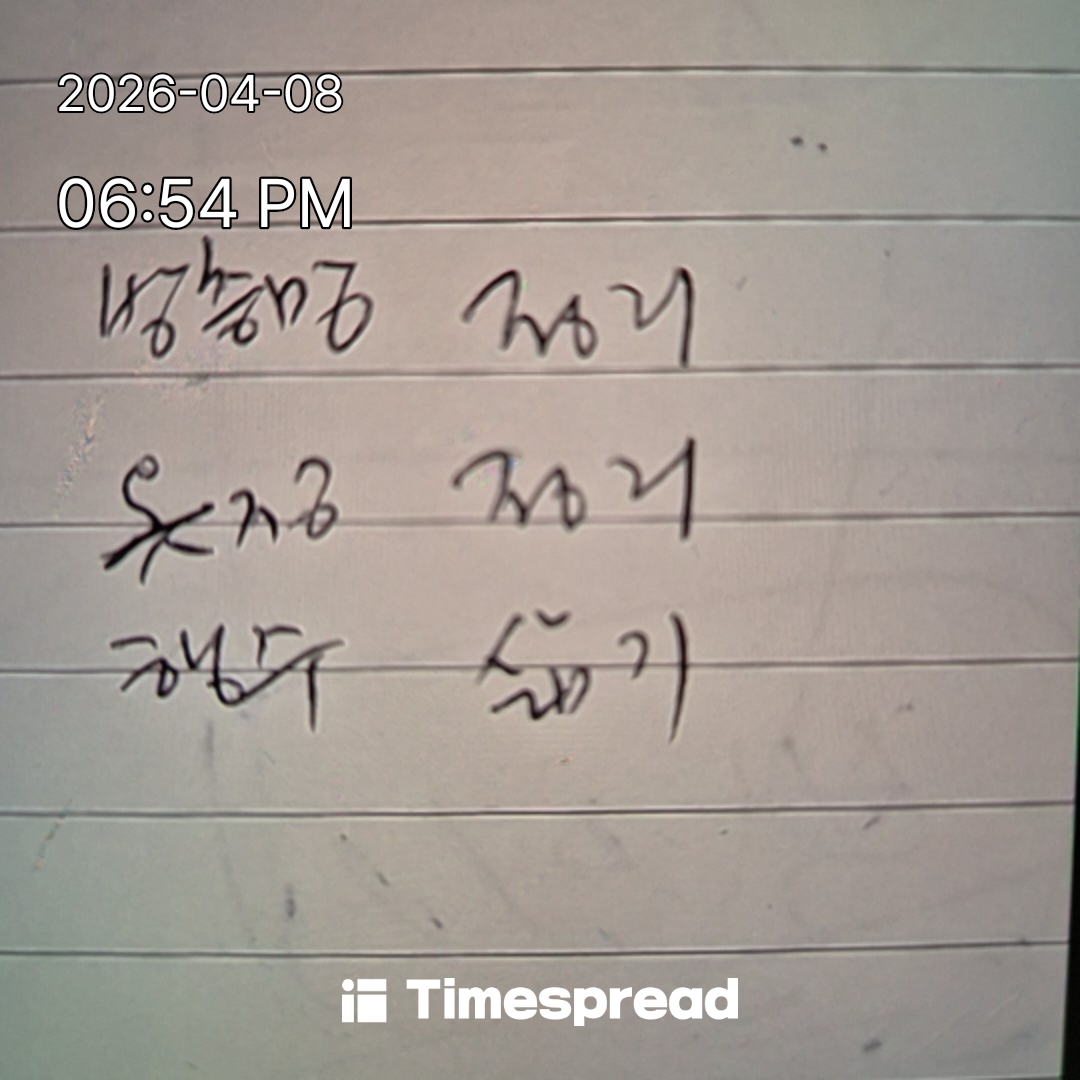 2026-04-08
06:54 PM
정리
옷장 정리
행주 삶기
Timespread